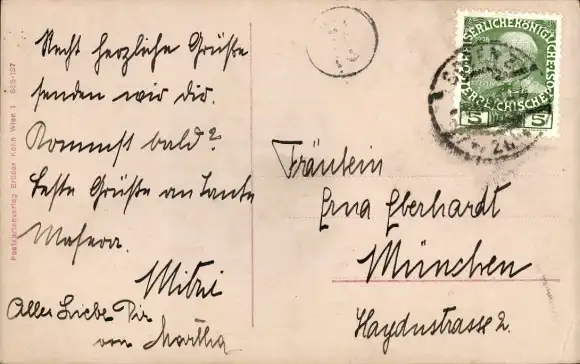 Recht herzliche Grüße
senden wir dir.
Kommst bald?
Beste Grüße an Tante
Mitzi
Alles Liebe Dir
von Martha
Fräulein
Erna Eberhardt
München
Haydnstrasse 2.
Postkartenverlag Brüder Kohn Wien I
KAISERLICHE KÖNIGLICHE
ÖSTERREICHISCHE POST
5 5